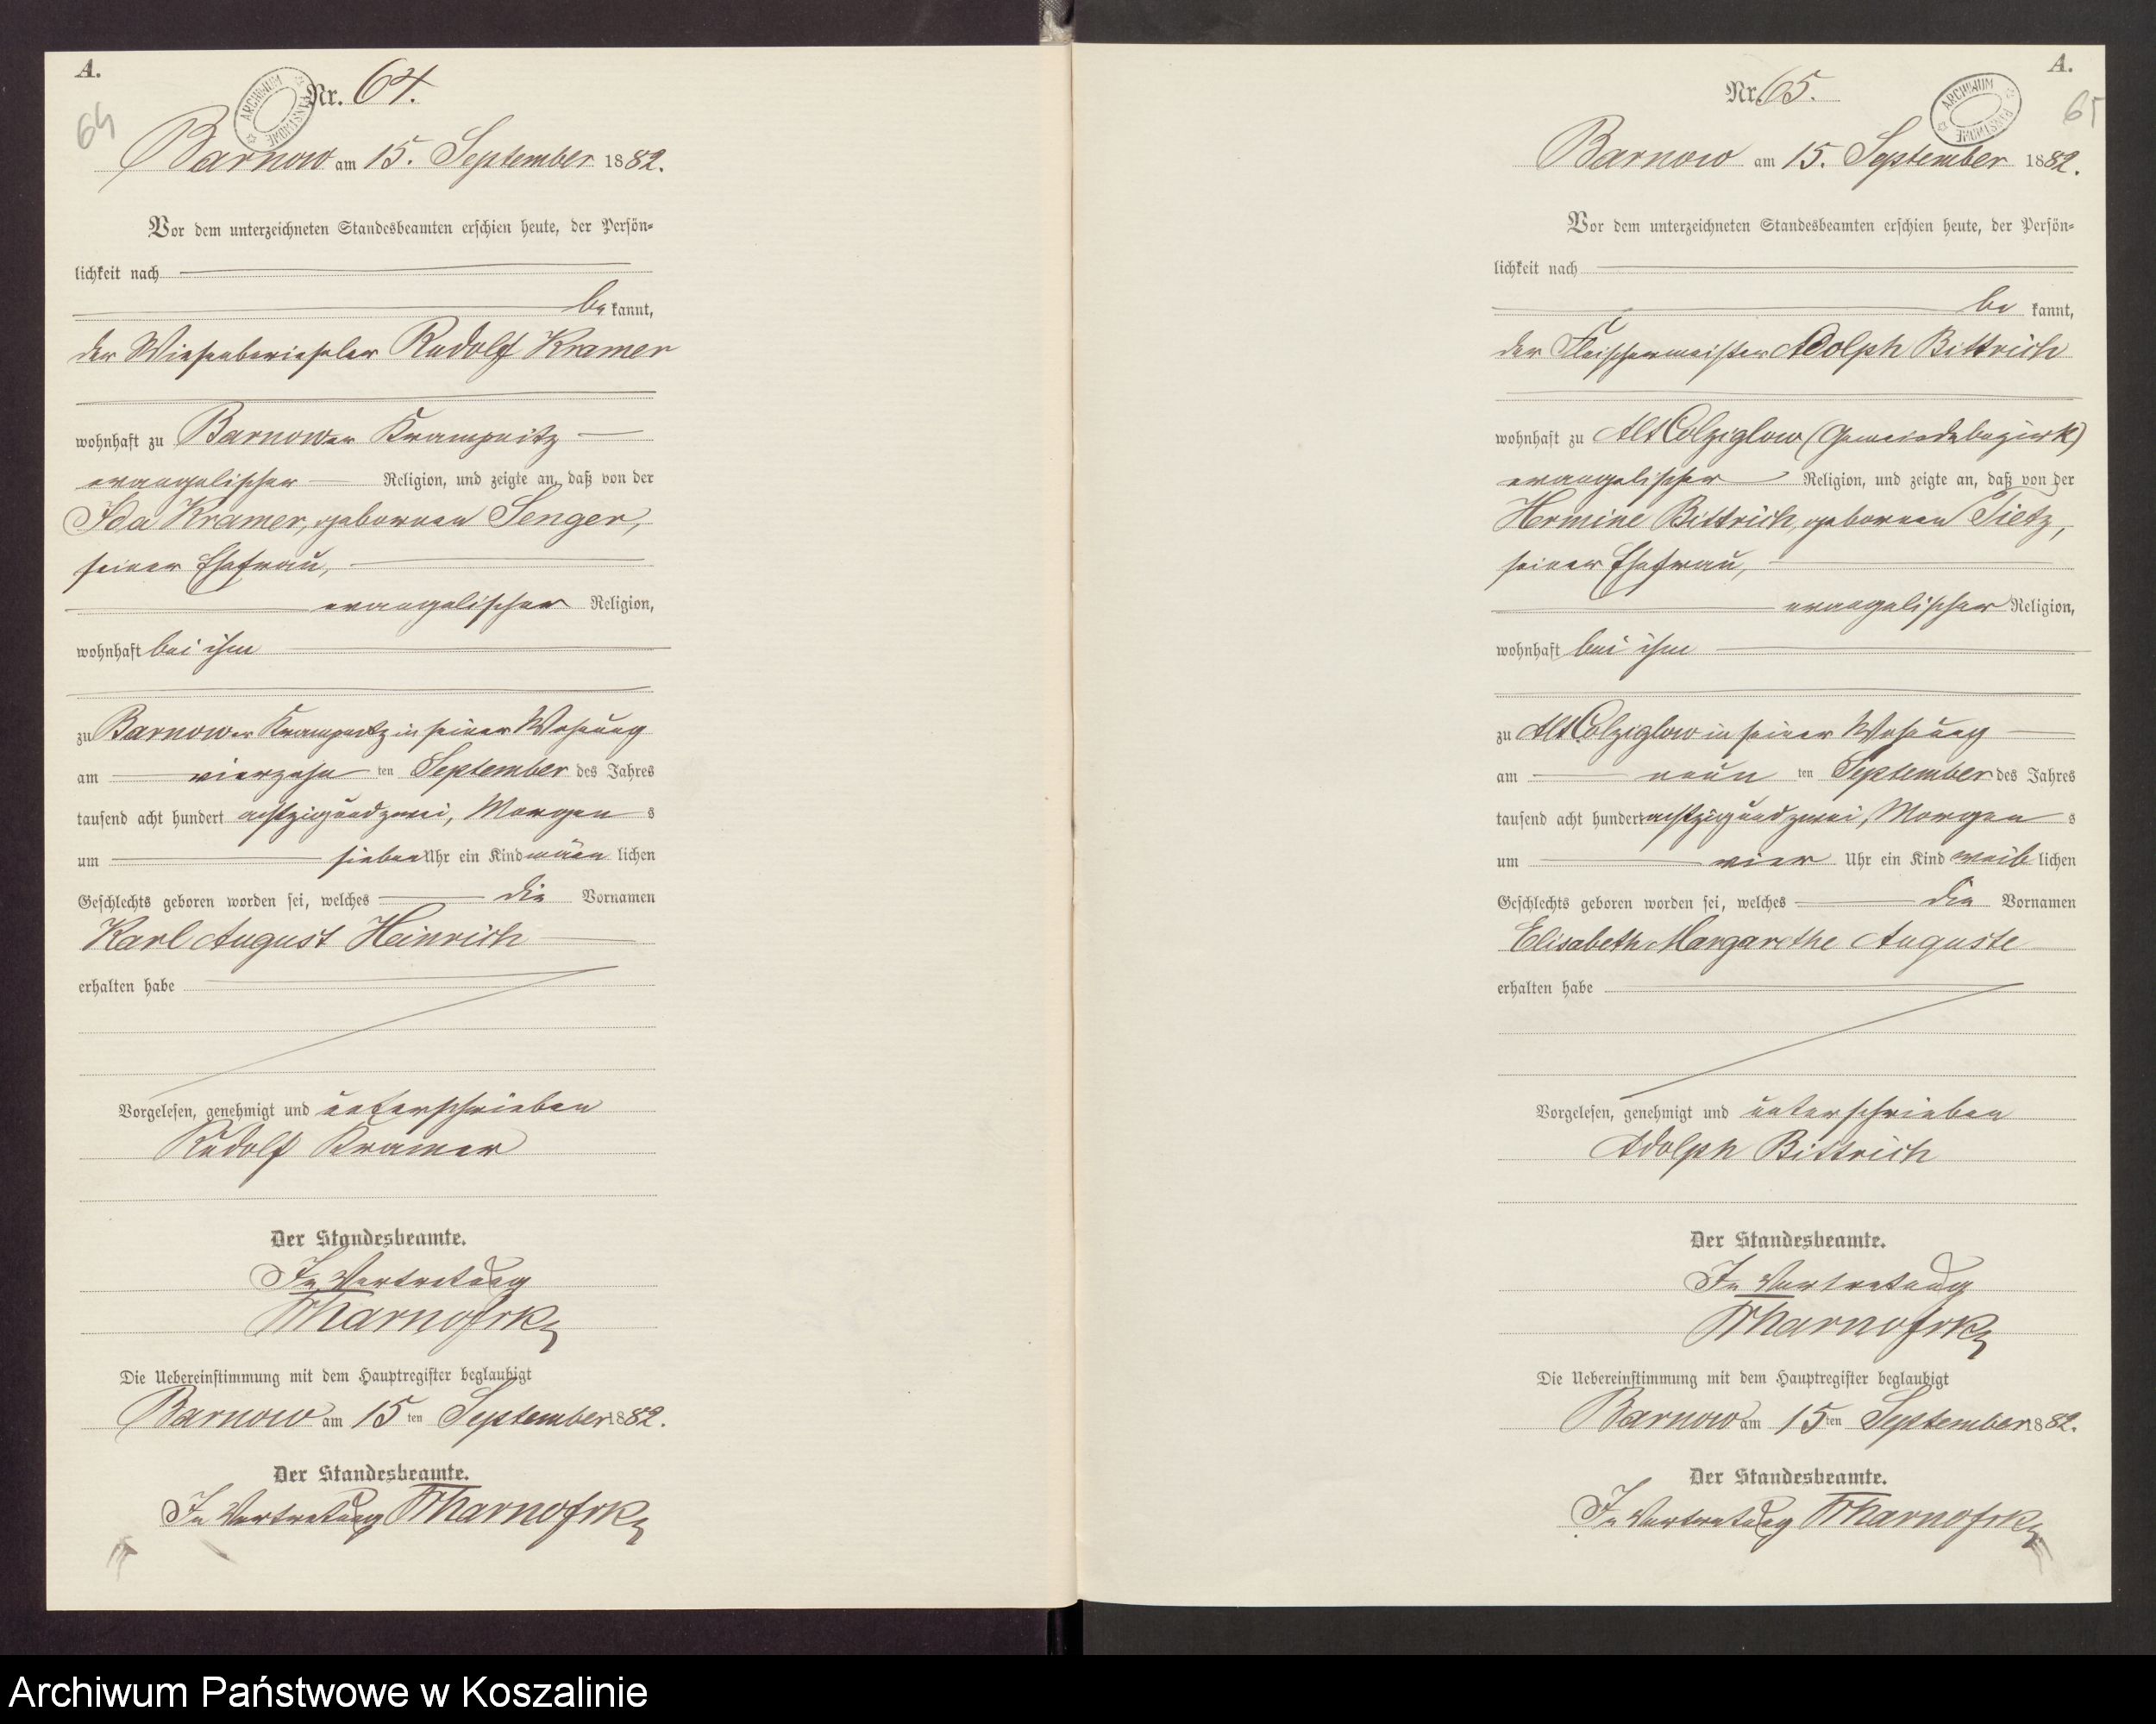 A.
64
ARCHIWUM PAŃSTWOWE
Nr. 64.
Barnow am 15. September 1882.
Vor dem unterzeichneten Standesbeamten erschien heute, der Persön-
lichkeit nach
be kannt,
der Wiesenberiesler Rudolf Kramer
wohnhaft zu Barnower Krampnitz
evangelischer Religion, und zeigte an, daß von der
Ida Kramer, gebornen Senger,
seiner Ehefrau,
evangelischer Religion,
wohnhaft bei ihm
zu Barnower Krampnitz in seiner Wohnung
am vierzehn ten September des Jahres
tausend acht hundert achtzig und zwei, Morgen s
um sieben Uhr ein Kind männ lichen
Geschlechts geboren worden sei, welches die Vornamen
Karl August Heinrich
erhalten habe
Vorgelesen, genehmigt und unterschrieben
Rudolf Kramer
Der Standesbeamte.
In Vertretung
Tharnofsky
Die Uebereinstimmung mit dem Hauptregister beglaubigt
Barnow am 15 ten September 1882.
Der Standesbeamte.
In Vertretung Tharnofsky
A.
65
ARCHIWUM PAŃSTWOWE
Nr. 65.
Barnow am 15. September 1882.
Vor dem unterzeichneten Standesbeamten erschien heute, der Persön-
lichkeit nach
be kannt,
der Fleischermeister Adolph Bittrich
wohnhaft zu Alt Colziglow (Gemeindebezirk)
evangelischer Religion, und zeigte an, daß von der
Hermine Bittrich, gebornen Tietz,
seiner Ehefrau,
evangelischer Religion,
wohnhaft bei ihm
zu Alt Colziglow in seiner Wohnung
am neun ten September des Jahres
tausend acht hundert achtzig und zwei, Morgen s
um vier Uhr ein Kind weib lichen
Geschlechts geboren worden sei, welches die Vornamen
Elisabeth Margarethe Auguste
erhalten habe
Vorgelesen, genehmigt und unterschrieben
Adolph Bittrich
Der Standesbeamte.
In Vertretung
Tharnofsky
Die Uebereinstimmung mit dem Hauptregister beglaubigt
Barnow am 15 ten September 1882.
Der Standesbeamte.
In Vertretung Tharnofsky
Archiwum Państwowe w Koszalinie